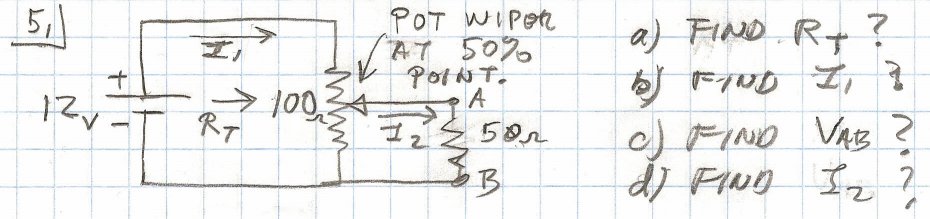 5.
POT WIPER
AT 50%
POINT.
I₁
+
12V
-
R_T
100Ω
A
I₂
50Ω
B
a) FIND R_T ?
b) FIND I₁ ?
c) FIND V_AB ?
d) FIND I₂ ?